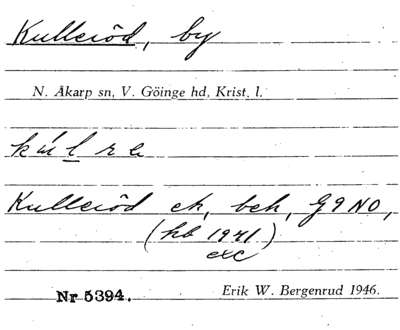 Kulleröd, by
N. Åkarp sn, V. Göinge hd, Krist. l.
Kulleröd ek, bek, G9NO,
(hb 1941)
exc
Nr 5394.
Erik W. Bergenrud 1946.